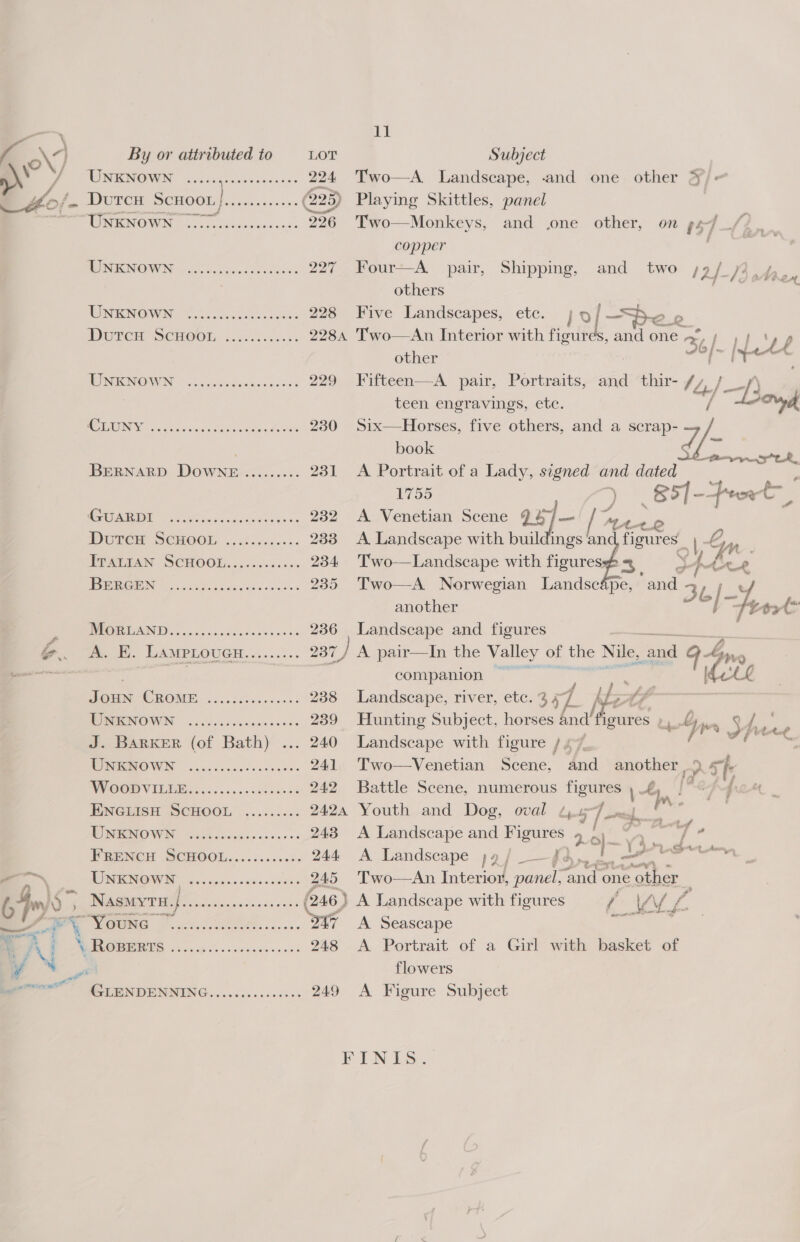 11
By or attributed to LOT Subject
UNKNOWN .................. 224 Two—A Landscape, and one other
DUTCH SCHOOL ............ 225 Playing Skittles, panel
UNKNOWN .................. 226 Two—Monkeys, and one other, on
copper
UNKNOWN .................. 227 Four—A pair, Shipping, and two
others
UNKNOWN .................. 228 Five Landscapes, etc.
DUTCH SCHOOL ............ 228A Two—An Interior with figures, and one
other
UNKNOWN .................. 229 Fifteen—A pair, Portraits, and thir-
teen engravings, etc.
CLUNY ..................... 230 Six—Horses, five others, and a scrap-
book
BERNARD DOWNE ......... 231 A Portrait of a Lady, signed and dated
1755
GUARDI .................. 232 A Venetian Scene
DUTCH SCHOOL ............ 233 A Landscape with buildings and figures
ITALIAN SCHOOL............ 234 Two—Landscape with figures
BERGEN .................. 235 Two—A Norwegian Landscape, and
another
MORLAND.................. 236 Landscape and figures
A. E. LAMPLOUGH.......... 237 A pair—In the Valley of the Nile, and
companion
JOHN CROME ............... 238 Landscape, river, etc.
UNKNOWN .................. 239 Hunting Subject, horses and figures
J. BARKER (of Bath) ... 240 Landscape with figure
UNKNOWN .................. 241 Two—Venetian Scene, and another
WOODVILLE.................. 242 Battle Scene, numerous figures
ENGLISH SCHOOL ......... 242A Youth and Dog, oval
UNKNOWN .................. 243 A Landscape and Figures
FRENCH SCHOOL............ 244 A Landscape
UNKNOWN .................. 245 Two—An Interior, panel, and one other
NASMYTH.................. 246 A Landscape with figures
YOUNG .................. 247 A Seascape
ROBERTS .................. 248 A Portrait of a Girl with basket of
flowers
GLENDENNING............... 249 A Figure Subject
FINIS.